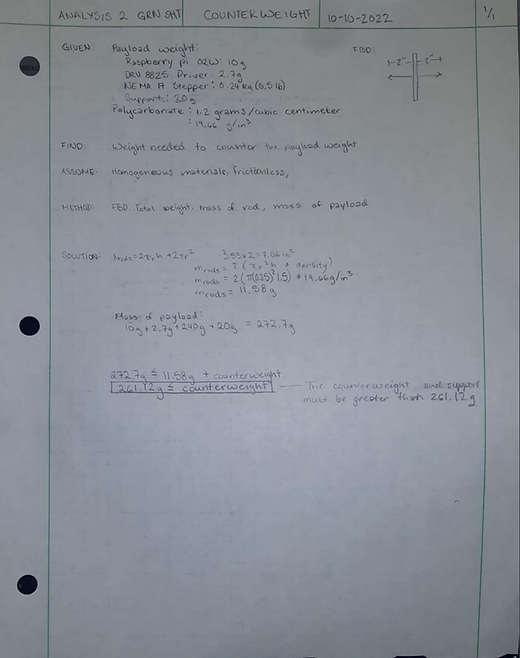 ANALYSIS 2 GRN SHT COUNTERWEIGHT 10-10-2022 1/1
GIVEN: Payload weight: FBD:
Raspberry pi 02W: 10g
DRV 8825 Driver: 2.7g
2" 2"
NEMA 17 Stepper: 0.24kg (0.5lb)
Supports: 20g
Polycarbonate: 1.2 grams/cubic centimeter
: 19.66 g/in³
FIND: Weight needed to counter the payload weight
ASSUME: Homogeneous materials, frictionless,
METHOD: FBD, Total weight, mass of rod, mass of payload
SOLUTION: Arods = 2πrh + 2πr² 3.53x2 = 7.06in²
mrods = 2(πr²h * density)
mrods = 2(π(.025)²1.5) * 19.66g/in³
mrods = 11.58g
Mass of payload:
10g + 2.7g + 240g + 20g = 272.7g
272.7g ≤ 11.58g + counterweight
261.12g ≤ counterweight — The counterweight and support
must be greater than 261.12g